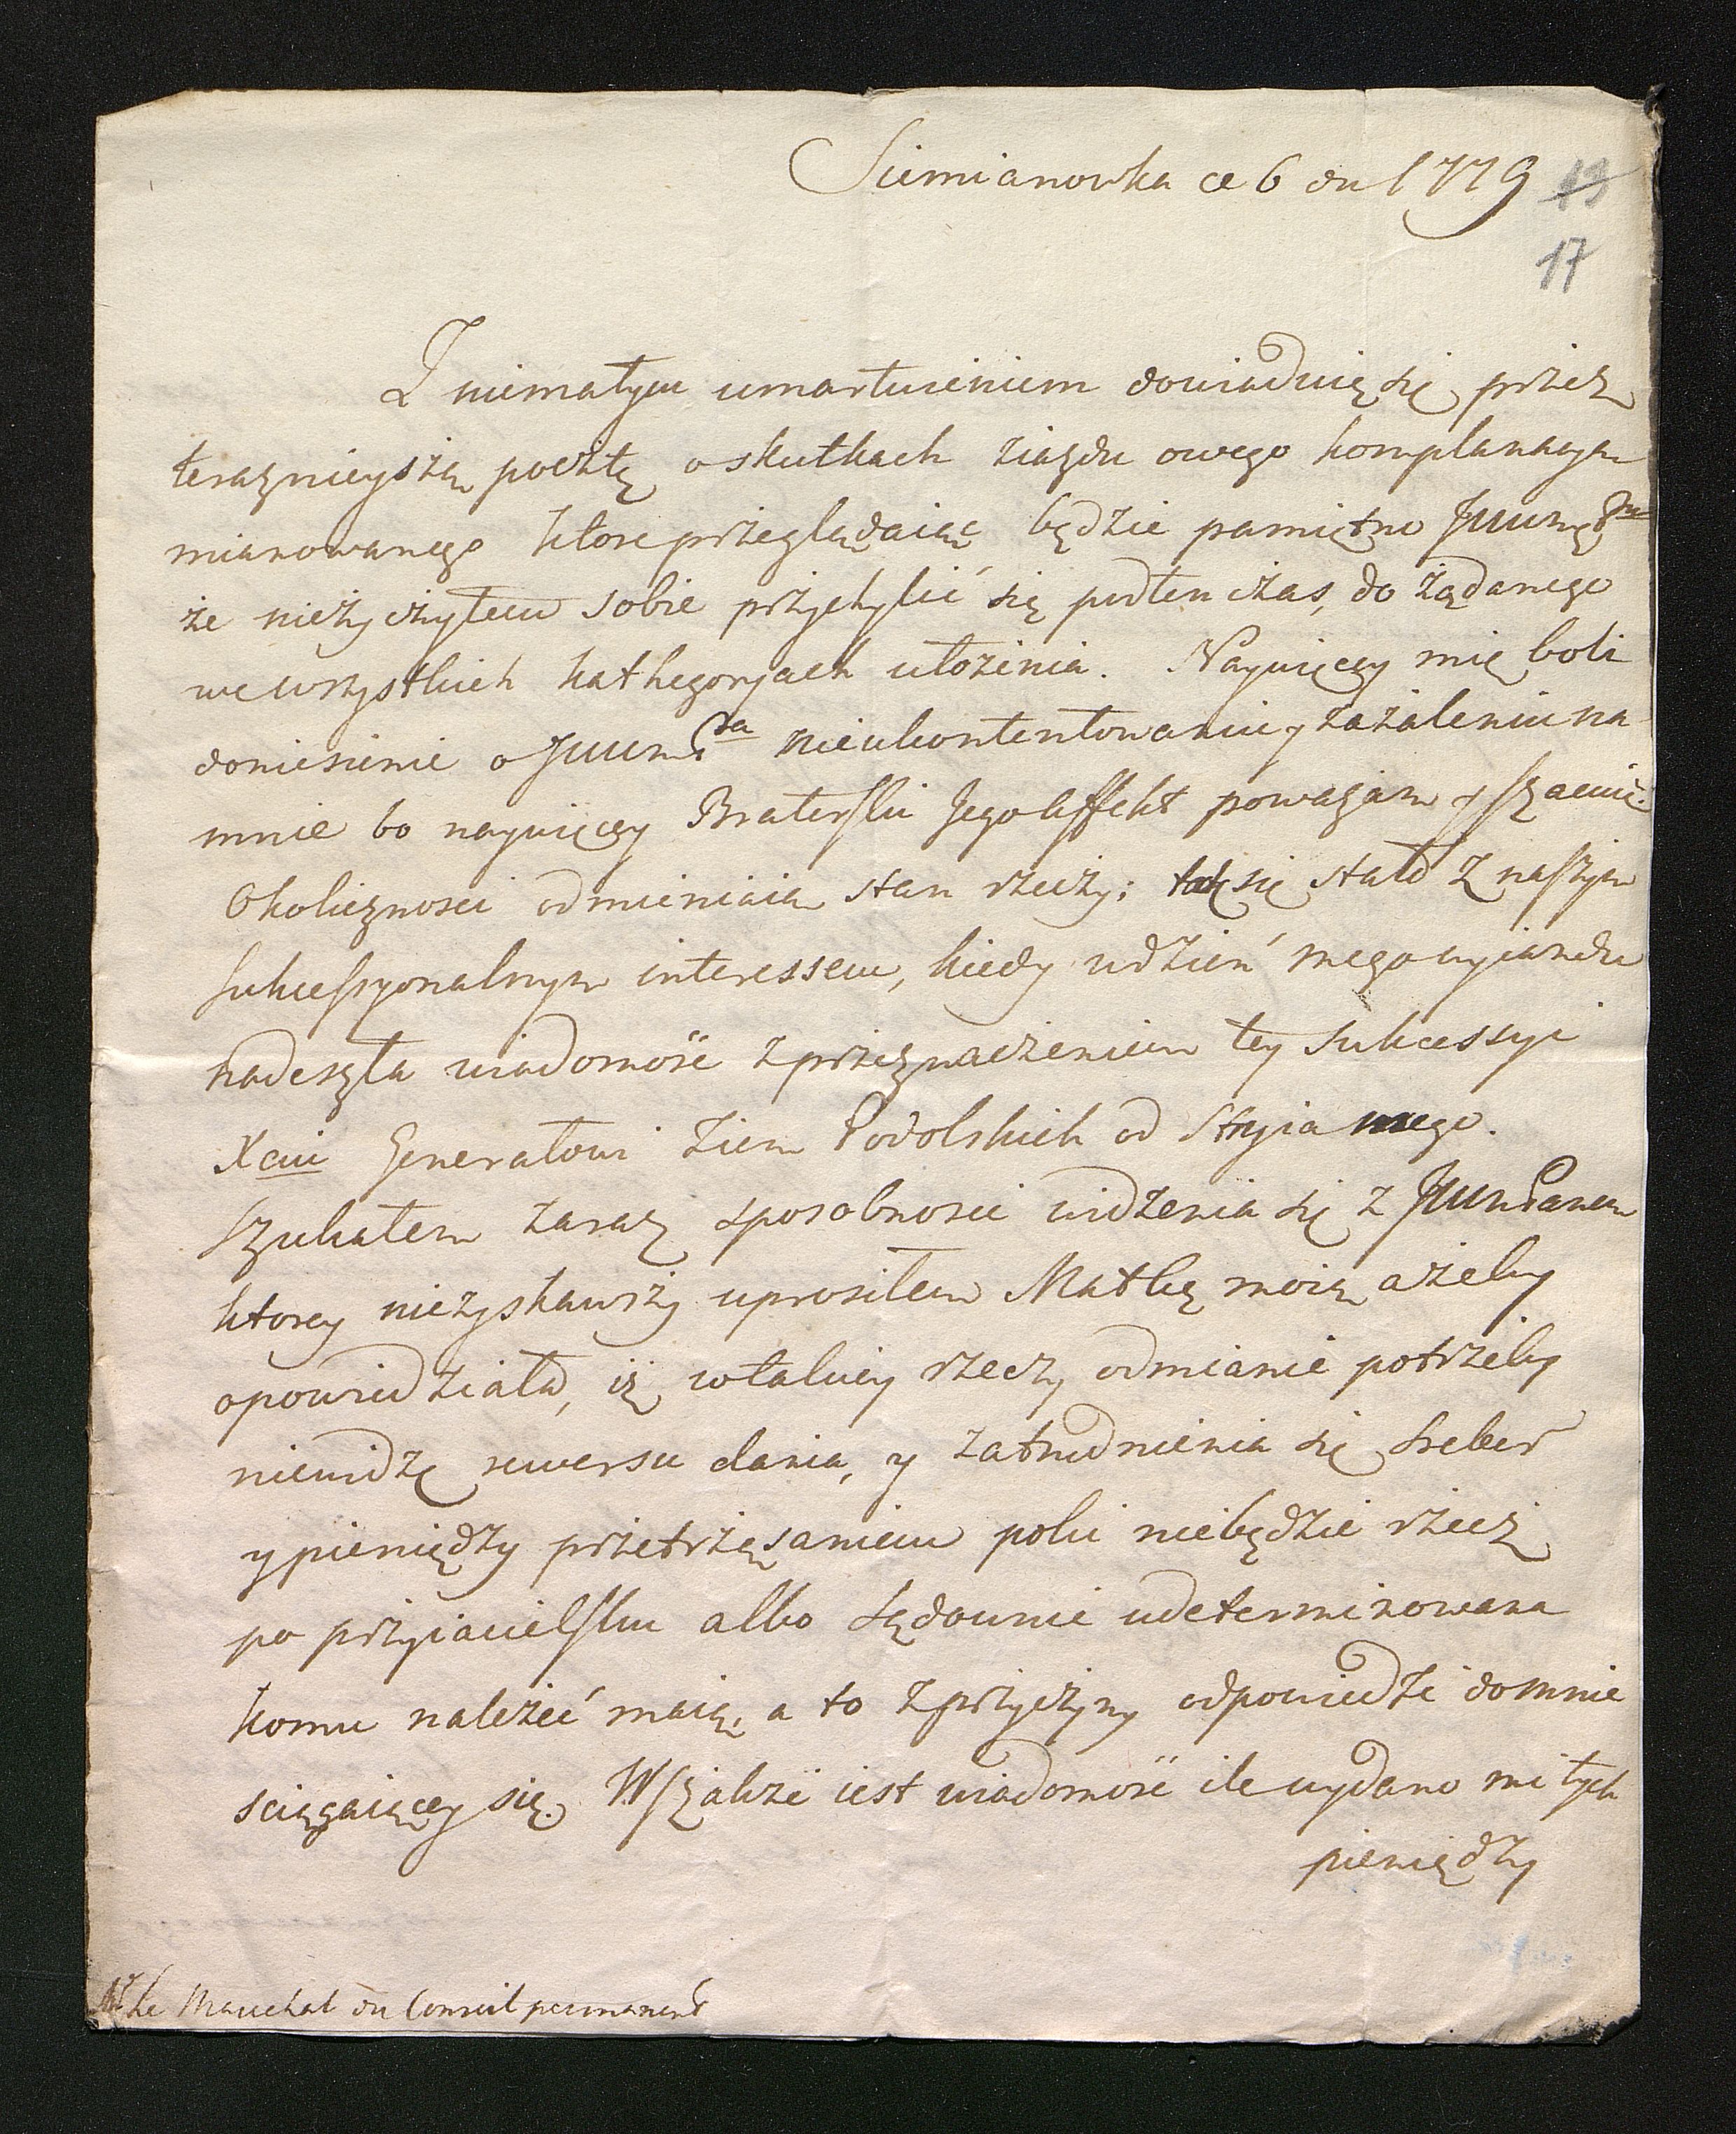 Siemianowka ce 6 du 1779
13
17
Z niemałym umartwieniem dowiaduię się przez
teraznieyszą pocztę o skutkach ziazdu owego komplanacyą
mianowanego ktore przeglądaiąc będzie pamiętno
że nieżyczyłem sobie przychylić się podten czas, do żądanego
wewszystkich kathegoryach ułożenia. Naywięcey mię boli
doniesienie o JWWPana nieukontentowaniu y zażaleniu na
mnie bo naywięcey Braterski Jego affekt poważam y szacuię.
Okoliczności odmieniaią stan rzeczy; tak się stało z naszym
sukcessyonalnym interessem, kiedy wdzień mego wyiazdu
nadeszła wiadomość z przeznaczeniem tey Sukcessyi
Xciu Generałowi Ziem Podolskich od Stryia mego.
Szukałem zaraz sposobności widzenia się z JWWPanem
ktorey niezyskawszy uprosiłem Matkę moię ażeby
opowiedziała, iż wtakiey rzeczy odmianie potrzeby
niewidzę rewersu dania, y zatrudnienia się sreber
y pieniędzy przetrząsaniem poki niebędzie rzecz
po przyiacielsku albo sądownie udeterminowana
komu należeć maią, a to zprzyczyny odpowiedzi domnie
sciągaiącey się. Wszakże iest wiadomość ile wydano mi tych
pieniędzy
Mr le Marechal du Conseil permanent